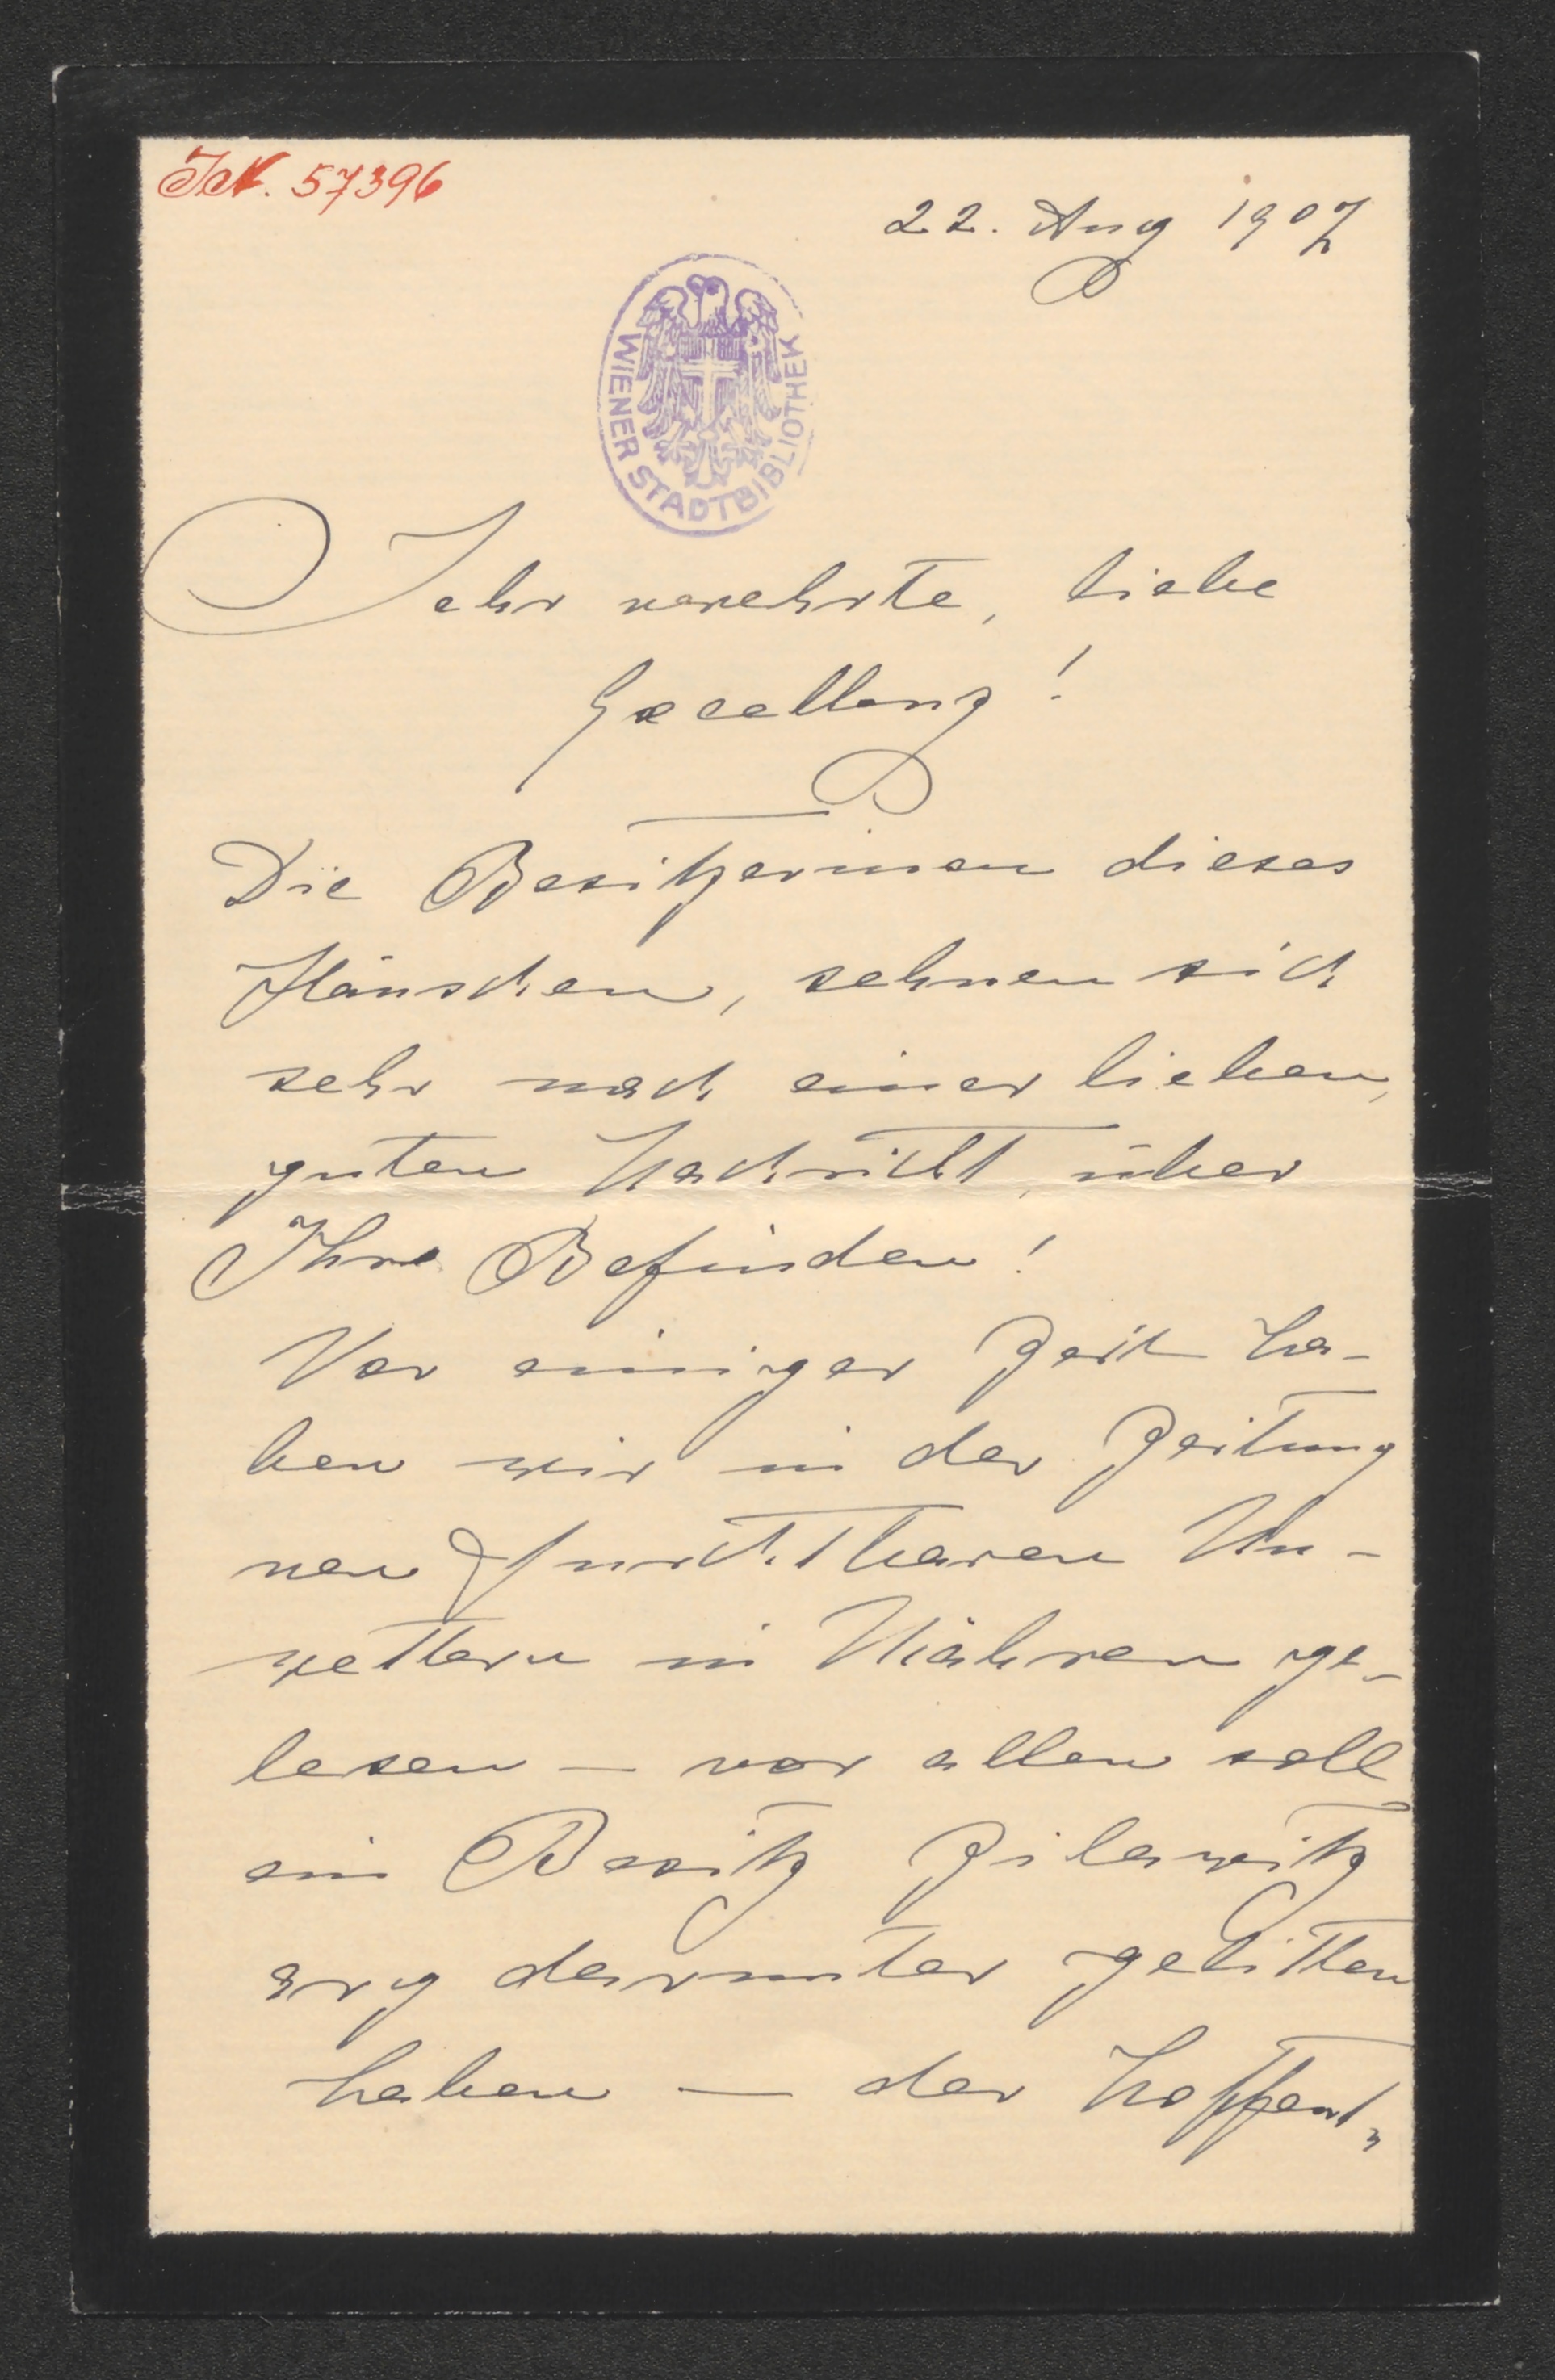 I.N. 57396
22. Aug 1907
WIENER STADTBIBLIOTHEK
Sehr verehrte, liebe
Excellenz!
Die Besitzerinen dieses
Häuschen, sehnen sich
sehr nach einer lieben,
guten Nachricht, über
Ihre Befinden!
Vor einiger Zeit ha-
ben wir in der Zeitung
von furchtbaren Un-
wettern in Mähren ge-
lesen — vor allen soll
ein Besitz Zilawitz
arg darunter gelitten
haben — der hoffent„